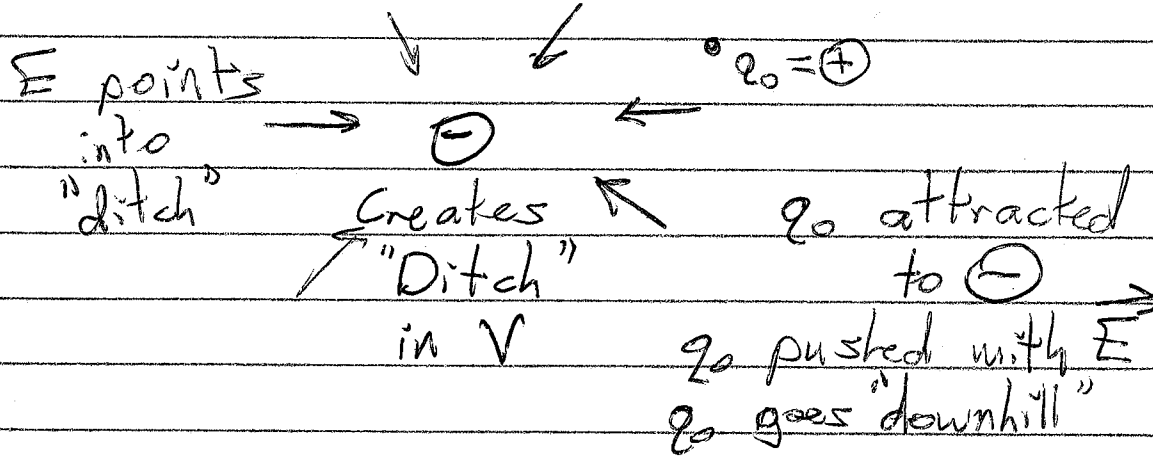 E points
into
"ditch"
⊖
Creates
"Ditch"
in V
q₀ = ⊕
q₀ attracted
to ⊖
q₀ pushed with E⃗
q₀ goes "downhill"